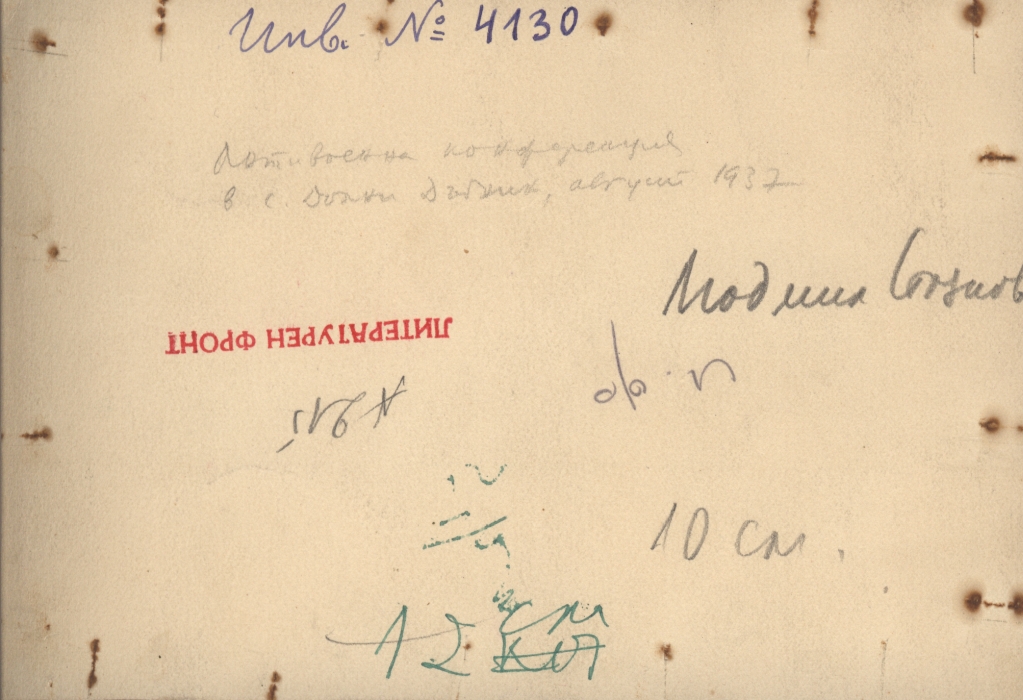 Инв. № 4130
Антивоенна конференция
в с. Долни Дъбник, август 1937
Людмил Стоянов
ЛИТЕРАТУРЕН ФРОНТ
10 см.
12 см